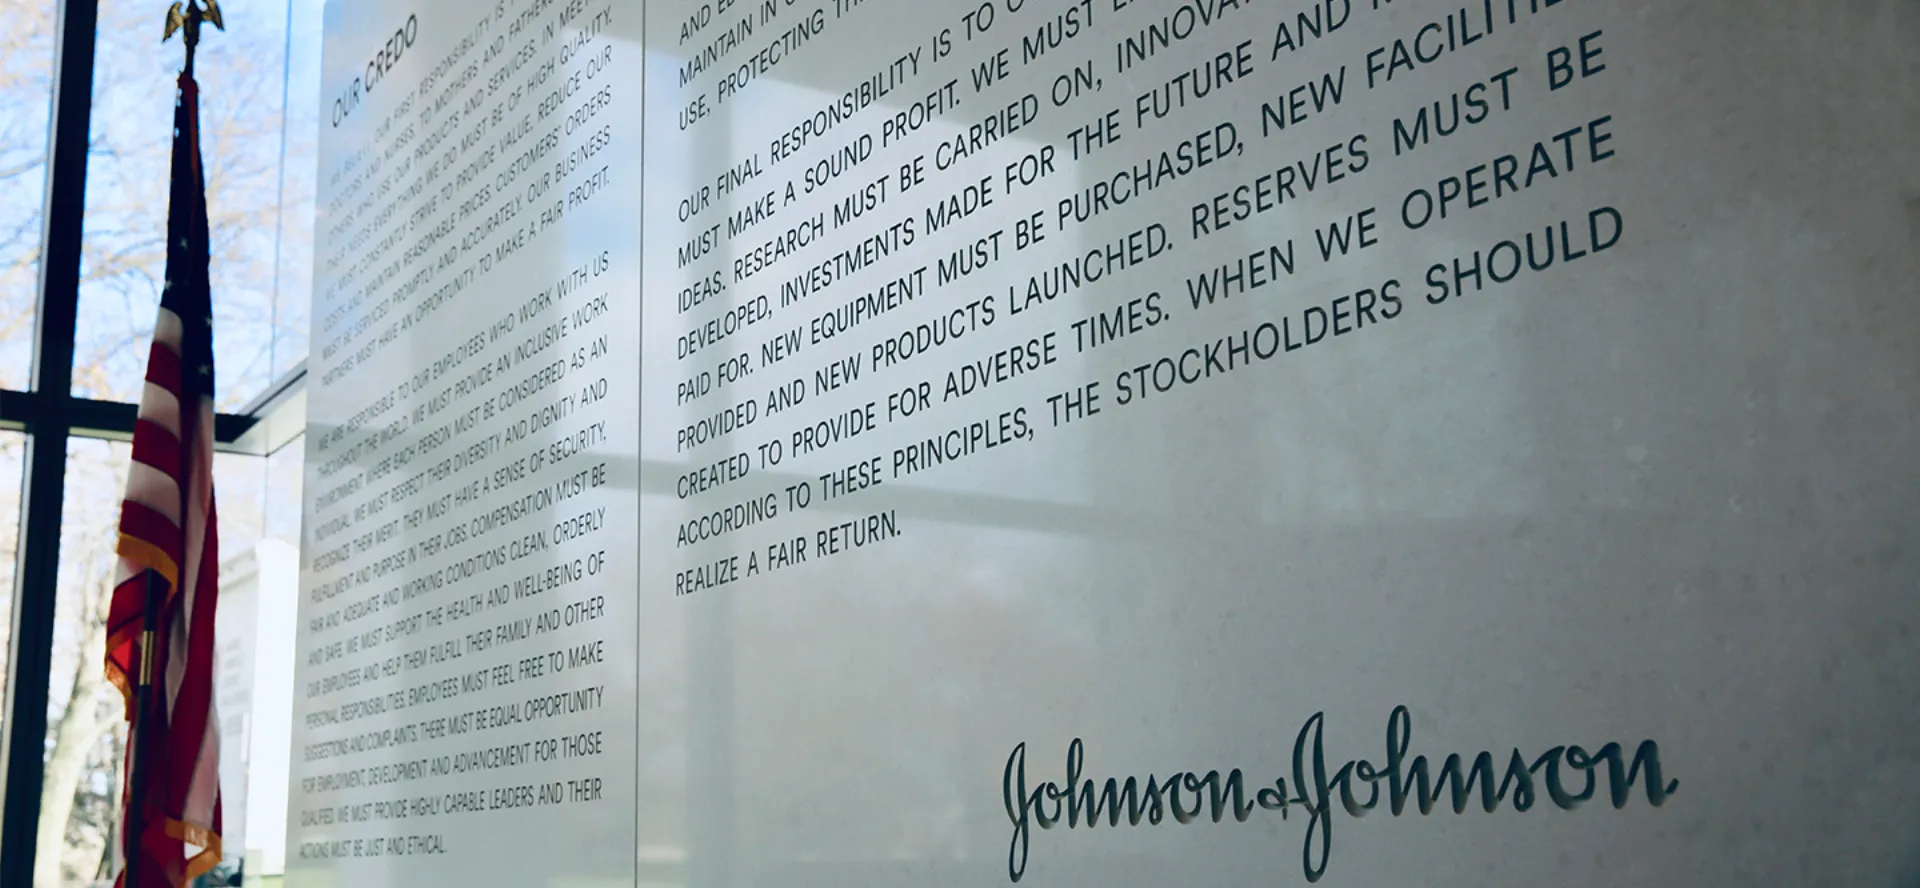 OUR CREDO
OUR FIRST RESPONSIBILITY IS
DOCTORS AND NURSES, TO MOTHERS AND FATHERS
OTHERS WHO USE OUR PRODUCTS AND SERVICES. IN MEET
THEIR NEEDS EVERYTHING WE DO MUST BE OF HIGH QUALITY.
WE MUST CONSTANTLY STRIVE TO PROVIDE VALUE, REDUCE OUR
COSTS AND MAINTAIN REASONABLE PRICES. CUSTOMERS' ORDERS
MUST BE SERVICED PROMPTLY AND ACCURATELY. OUR BUSINESS
PARTNERS MUST HAVE AN OPPORTUNITY TO MAKE A FAIR PROFIT.
WE ARE RESPONSIBLE TO OUR EMPLOYEES WHO WORK WITH US
THROUGHOUT THE WORLD. WE MUST PROVIDE AN INCLUSIVE WORK
ENVIRONMENT WHERE EACH PERSON MUST BE CONSIDERED AS AN
INDIVIDUAL. WE MUST RESPECT THEIR DIVERSITY AND DIGNITY AND
RECOGNIZE THEIR MERIT. THEY MUST HAVE A SENSE OF SECURITY,
FULFILLMENT AND PURPOSE IN THEIR JOBS. COMPENSATION MUST BE
FAIR AND ADEQUATE AND WORKING CONDITIONS CLEAN, ORDERLY
AND SAFE. WE MUST SUPPORT THE HEALTH AND WELL-BEING OF
OUR EMPLOYEES AND HELP THEM FULFILL THEIR FAMILY AND OTHER
PERSONAL RESPONSIBILITIES. EMPLOYEES MUST FEEL FREE TO MAKE
SUGGESTIONS AND COMPLAINTS. THERE MUST BE EQUAL OPPORTUNITY
FOR EMPLOYMENT, DEVELOPMENT AND ADVANCEMENT FOR THOSE
QUALIFIED. WE MUST PROVIDE HIGHLY CAPABLE LEADERS AND THEIR
ACTIONS MUST BE JUST AND ETHICAL.
AND
MAINTAIN IN
USE, PROTECTING
OUR FINAL RESPONSIBILITY IS TO
MUST MAKE A SOUND PROFIT. WE MUST
IDEAS. RESEARCH MUST BE CARRIED ON, INNOVA
DEVELOPED, INVESTMENTS MADE FOR THE FUTURE AND
PAID FOR. NEW EQUIPMENT MUST BE PURCHASED, NEW FACILITIE
PROVIDED AND NEW PRODUCTS LAUNCHED. RESERVES MUST BE
CREATED TO PROVIDE FOR ADVERSE TIMES. WHEN WE OPERATE
ACCORDING TO THESE PRINCIPLES, THE STOCKHOLDERS SHOULD
REALIZE A FAIR RETURN.
Johnson&Johnson